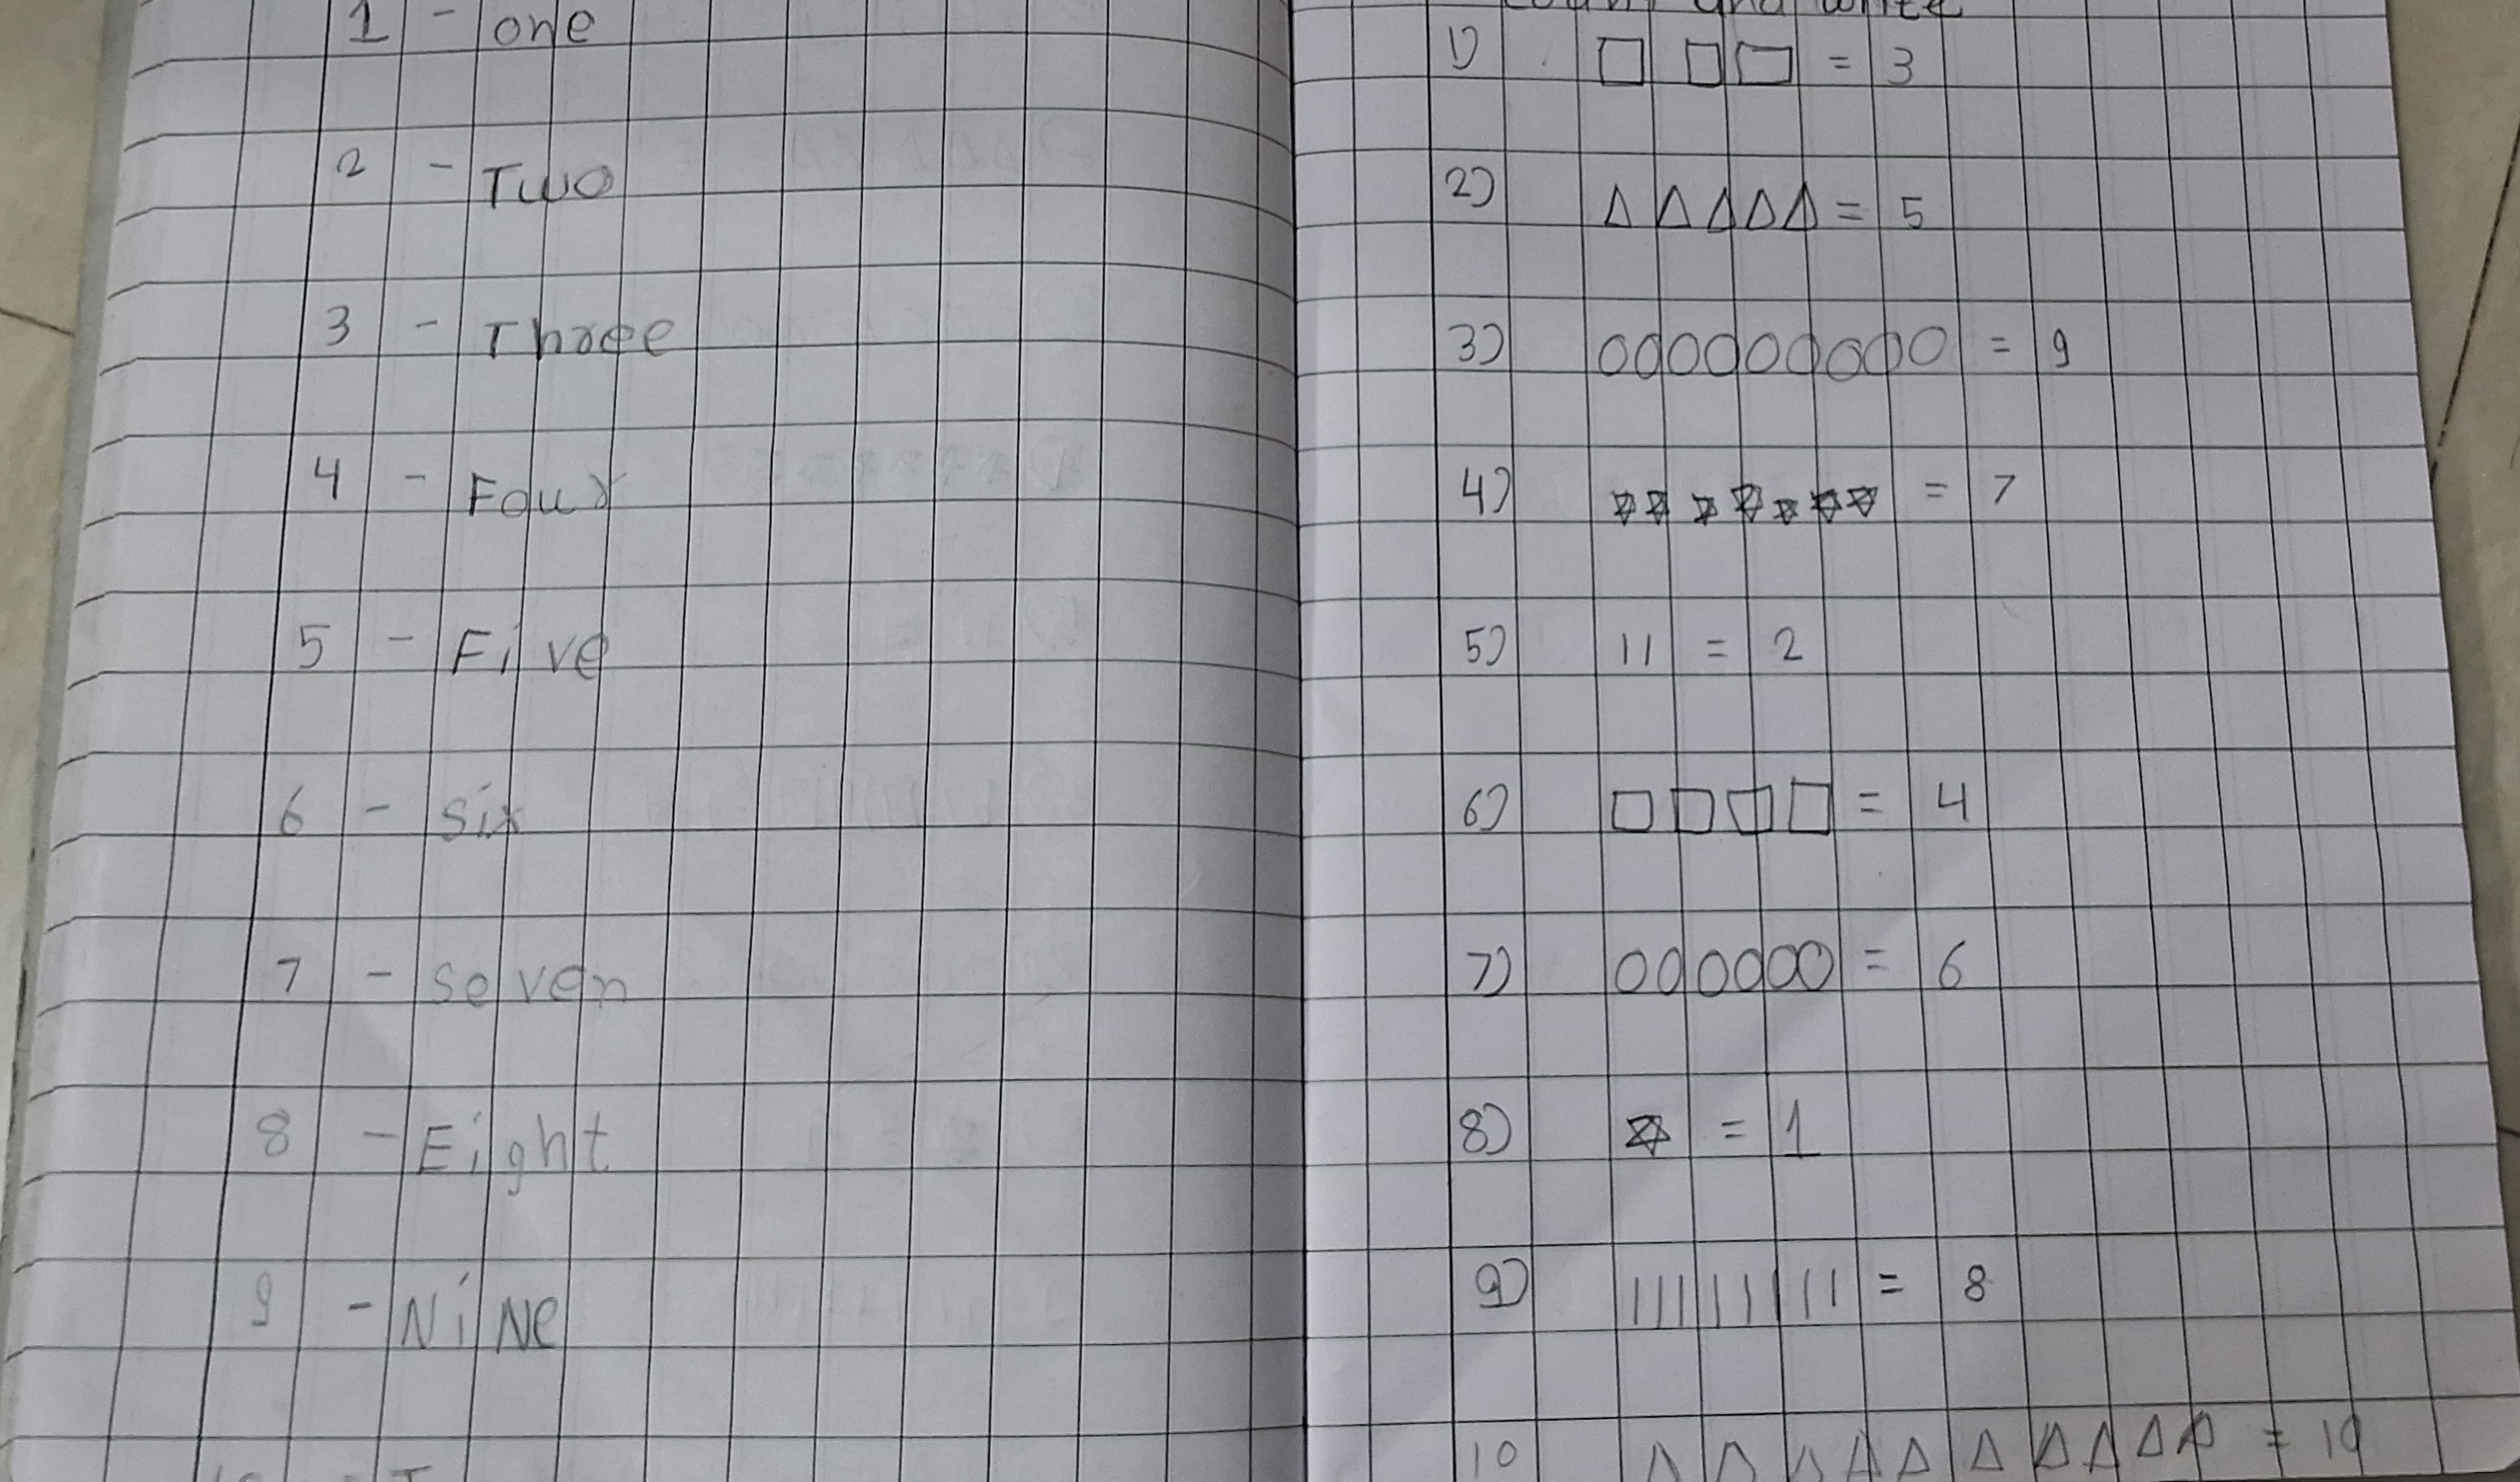 1 - one
2 - Two
3 - Three
4 - Four
5 - Five
6 - six
7 - seven
8 - Eight
9 - NiNe
count and write
1) □ □ □ = 3
2) △ △ △ △ △ = 5
3) ○ ○ ○ ○ ○ ○ ○ ○ ○ = 9
4) ☆ ☆ ☆ ☆ ☆ ☆ ☆ = 7
5) | | = 2
6) □ □ □ □ = 4
7) ○ ○ ○ ○ ○ ○ = 6
8) ☆ = 1
9) | | | | | | | | = 8
10 △ △ △ △ △ △ △ △ △ △ = 10